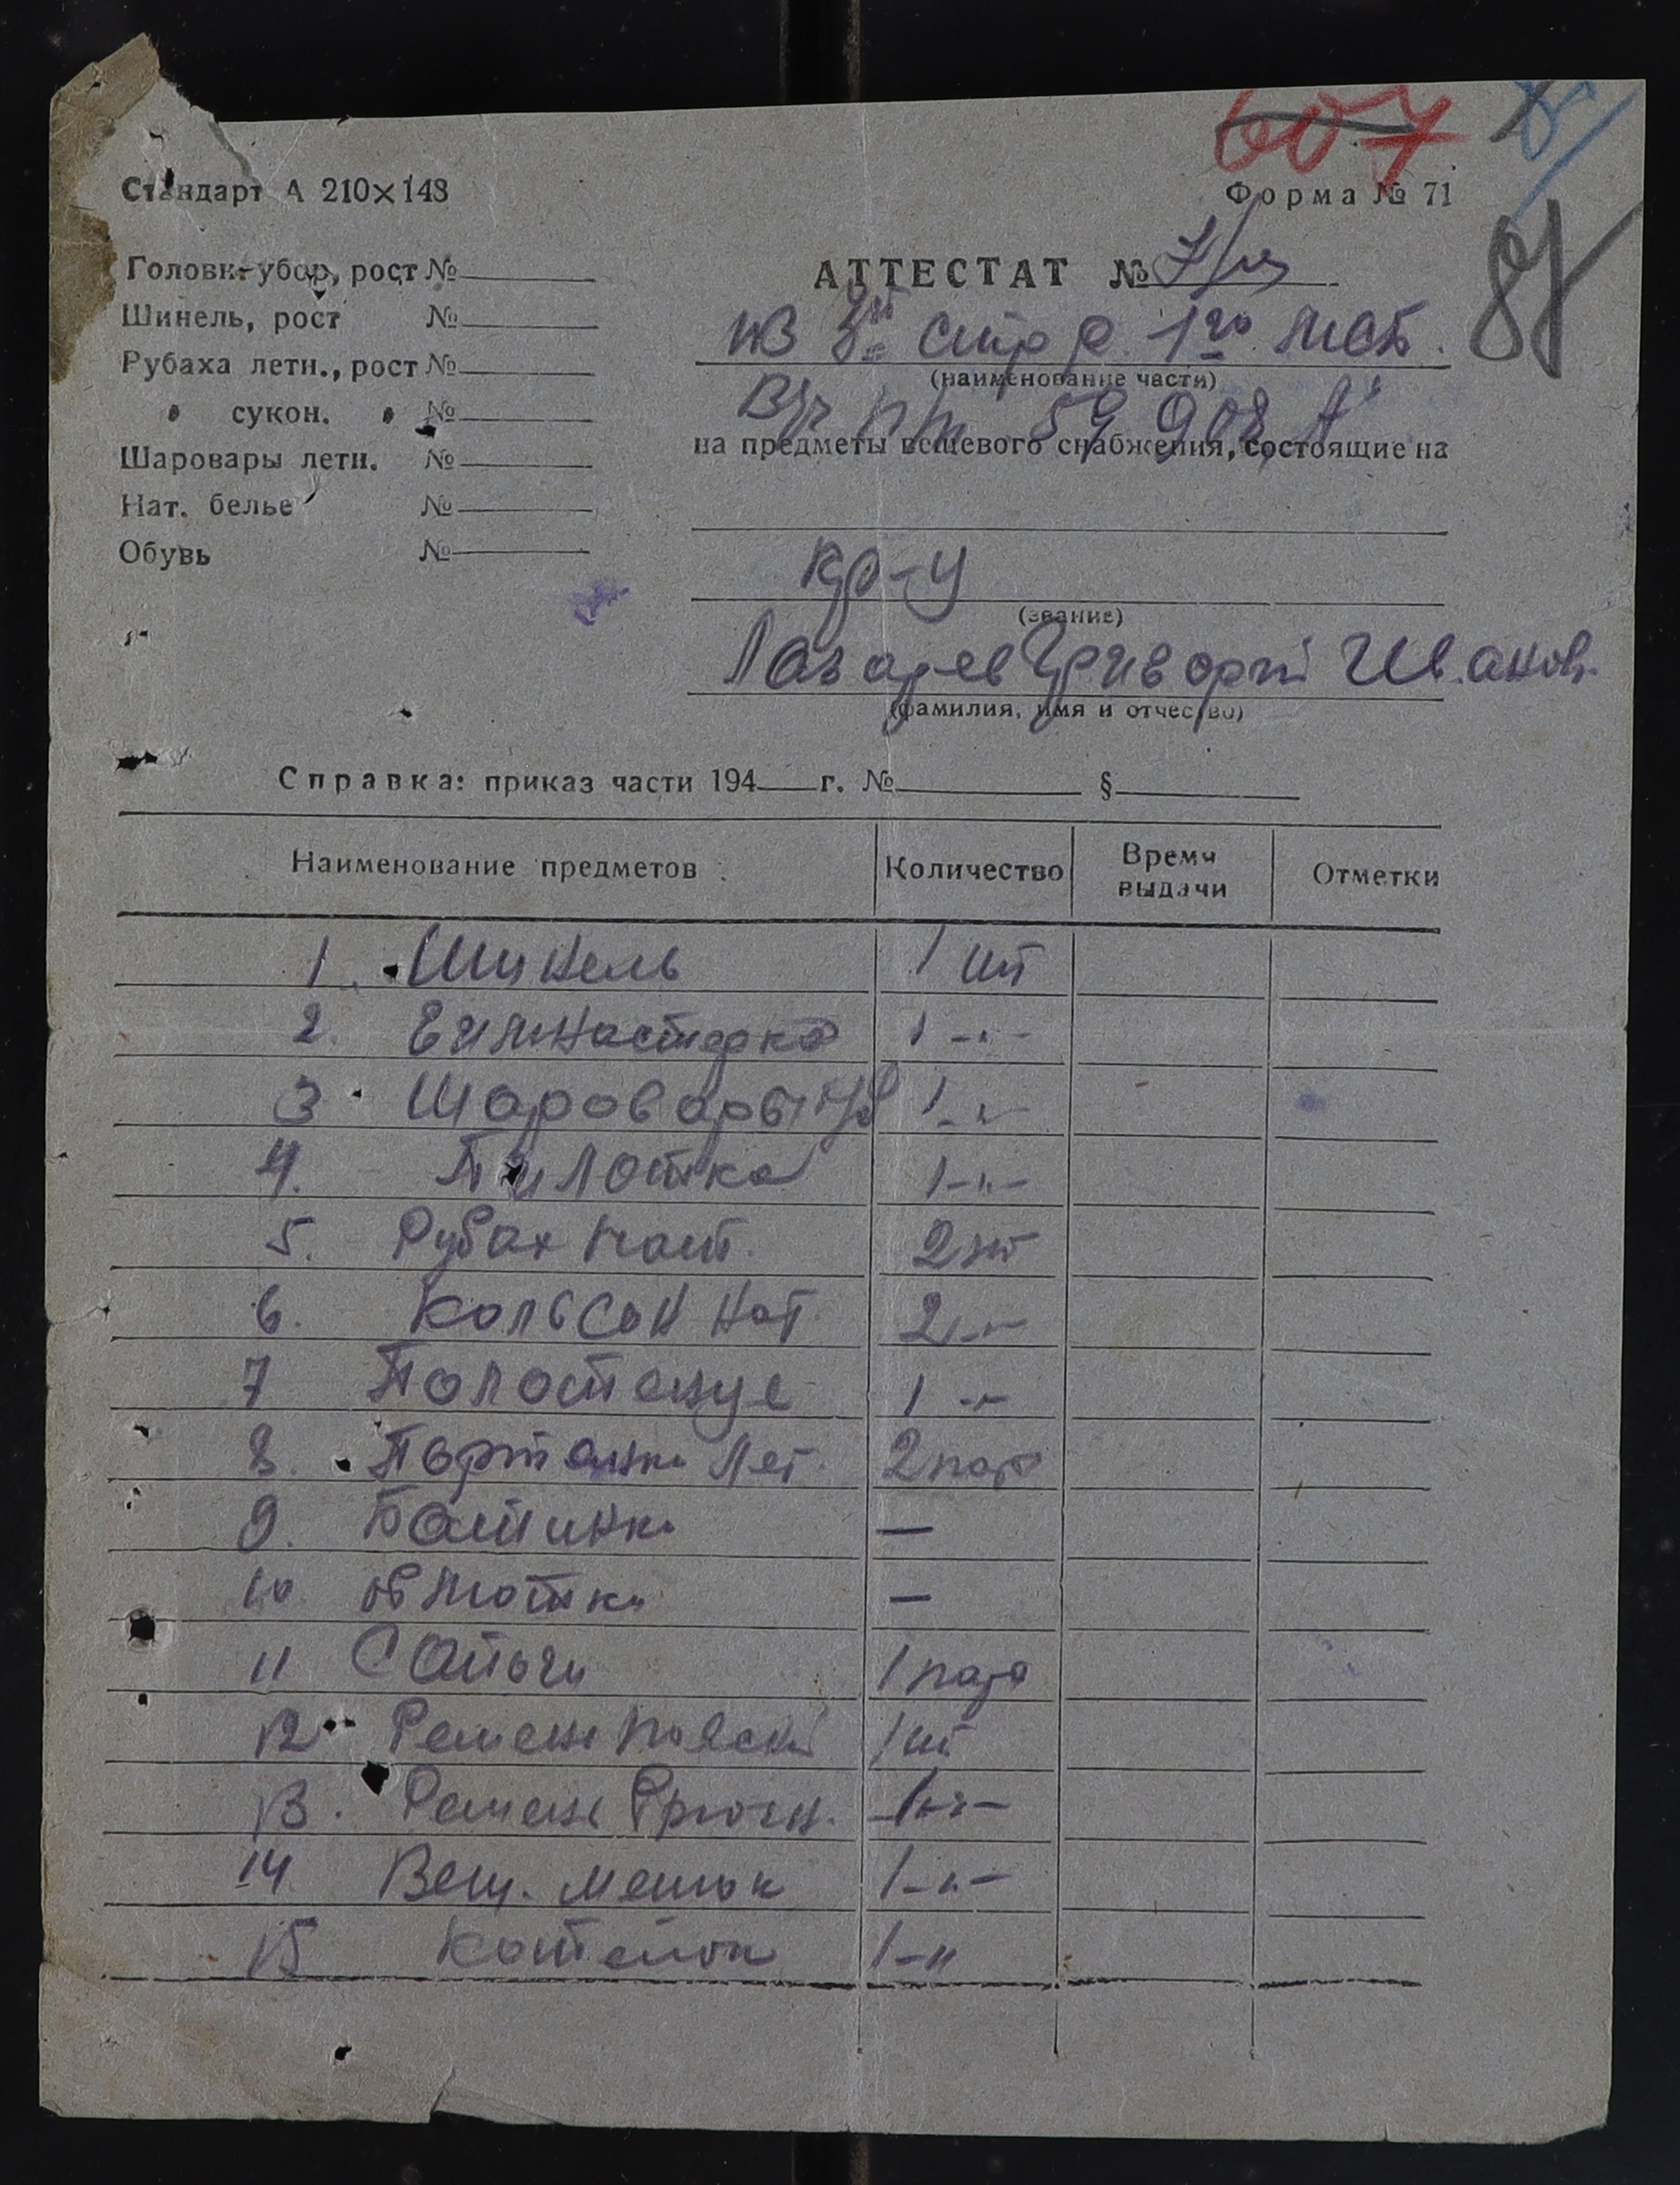 607
Стандарт А 210×148
Форма № 71
87
Головн. убор, рост №
Шинель, рост №
Рубаха летн., рост №
" сукон. " №
Шаровары летн. №
Нат. белье №
Обувь №
АТТЕСТАТ №
стр р 1го
(наименование части)
59908 А
на предметы вещевого снабжения, состоящие на
кр-ц
(звание)
Лазарев Григорий Иванов.
(фамилия, имя и отчество)
Справка: приказ части 194 г. № §
Наименование предметов Количество Время выдачи Отметки
1. Шинель 1 шт
2. Гимнастерка 1 -"-
3. Шаровары 1 -"-
4. Пилотка 1 -"-
5. Рубах нат. 2 шт
6. Кольсон нат. 2 -"-
7 Полотенце 1 -"-
8. Портянки лет. 2 пар
9. Ботинки —
10. Обмотки —
11 Сапоги 1 пара
12 Ремень поясн 1 шт
13. Ремень брючн. 1 -"-
14 Вещ. мешок 1 -"-
15 Котелок 1 -"